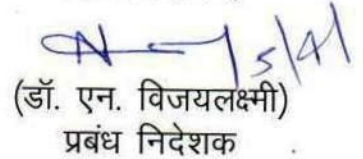 5/4/
(डॉ. एन. विजयलक्ष्मी)
प्रबंध निदेशक